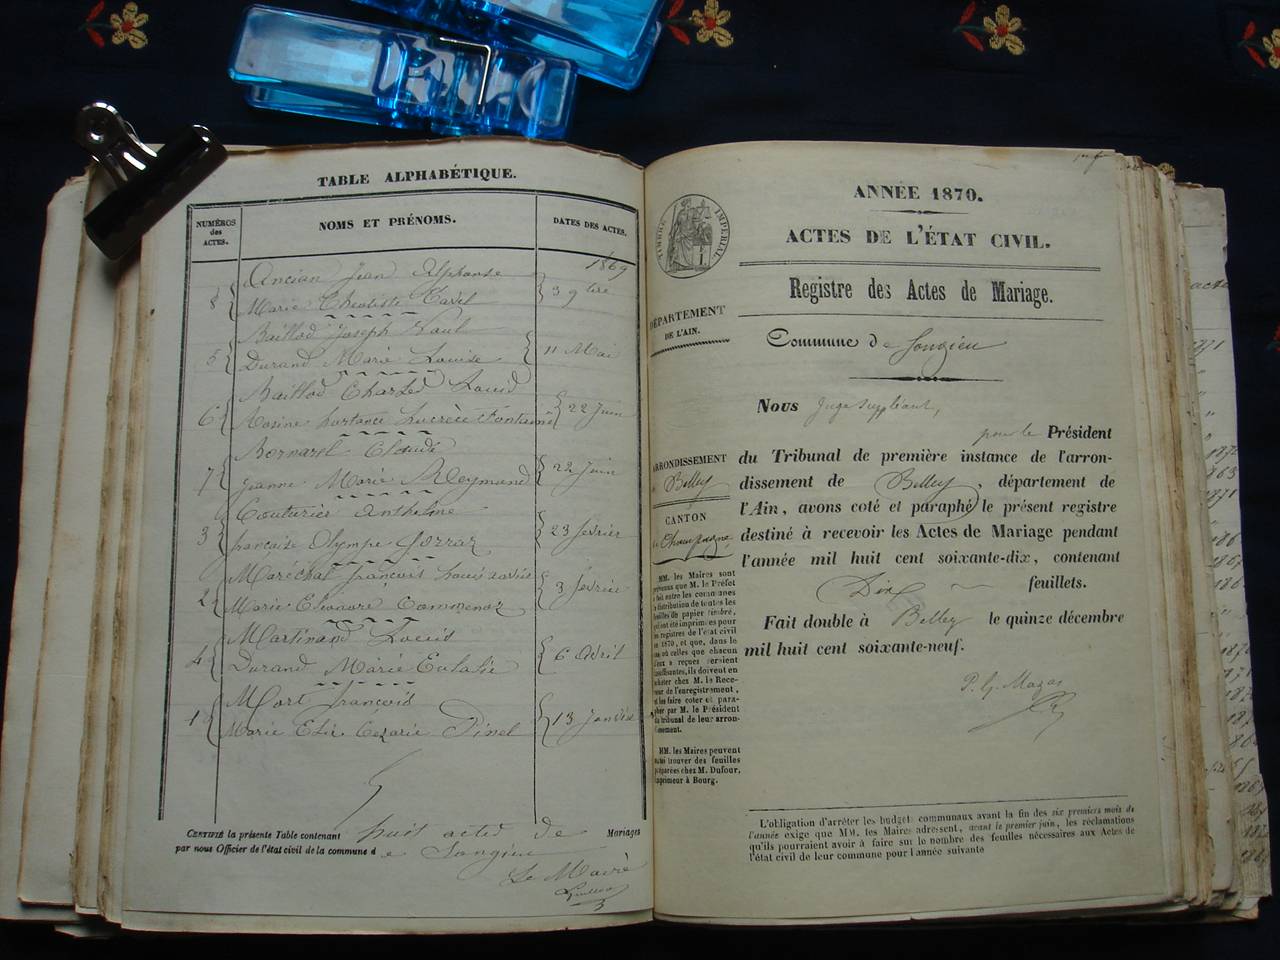 TABLE ALPHABÉTIQUE.
NUMÉROS des ACTES.
NOMS ET PRÉNOMS.
DATES DES ACTES.
1869
8 Ancian Jean Alphonse
Marie Théotiste Cavet 3 9bre
Baillod Joseph Paul
5 Durand Marie Louise 11 Mai
Baillod Charles Louis
6 Rosine hortance Lucrèce Fontaine 22 Juin
Bornarel Claude
7 Jeanne Marie Reymond 22 Juin
Couturier Anthelme
3 françoise Olympe 23 fevrier
Maréchal françois Louis xavier
2 Marie Eléonore 3 fevrier
Martinand Louis
4 Durand Marie Eulalie 6 Avril
Mort françois
1 Marie Elie Cezarie Pinel 13 Janvier
CERTIFIÉ la présente Table contenant huit actes de Mariages
par nous Officier de l'état civil de la commune de Songieu
Le Maire
TIMBRE IMPÉRIAL
ANNÉE 1870.
ACTES DE L'ÉTAT CIVIL.
Registre des Actes de Mariage.
DÉPARTEMENT
DE L'AIN.
Commune de Songieu
Nous Juge Suppléant,
pour le Président
du Tribunal de première instance de l'arron-
dissement de Belley, département de
l'Ain, avons coté et paraphé le présent registre
destiné à recevoir les Actes de Mariage pendant
l'année mil huit cent soixante-dix, contenant
Dix feuillets.
Fait double à Belley le quinze décembre
mil huit cent soixante-neuf.
P. G. Mazas
ARRONDISSEMENT
Belley
CANTON
de Champagne
MM. les Maires sont
prévenus que M. le Préfet
a fait entre les communes
la distribution de toutes les
feuilles de papier timbré,
qui ont été imprimées pour
les registres de l'état civil
en 1870, et que, dans le
cas où celles que chacun
d'eux a reçues seraient
insuffisantes, ils doivent en
acheter chez M. le Rece-
veur de l'enregistrement,
et les faire coter et para-
pher par M. le Président
du tribunal de leur arron-
dissement.
MM. les Maires peuvent
aussi trouver des feuilles
préparées chez M. Dufour,
imprimeur à Bourg.
L'obligation d'arrêter les budgets communaux avant la fin des six premiers mois de
l'année exige que MM. les Maires adressent, avant le premier juin, les réclamations
qu'ils pourraient avoir à faire sur le nombre des feuilles nécessaires aux Actes de
l'état civil de leur commune pour l'année suivante